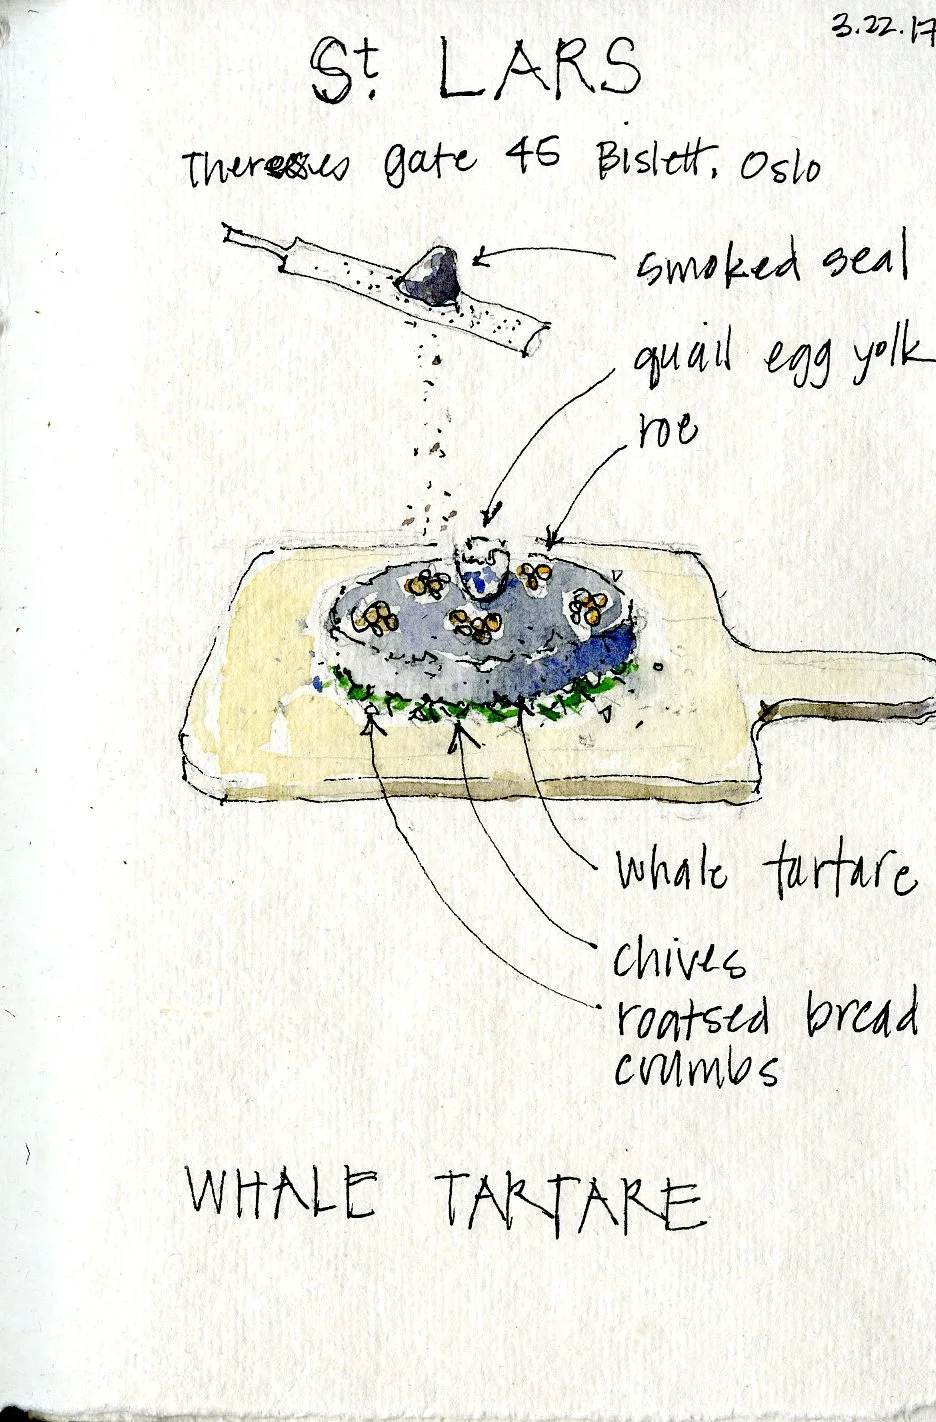 3.22.17
St. LARS
Thereses gate 45 Bislett, Oslo
smoked seal
quail egg yolk
roe
whale tartare
chives
roatsed bread
crumbs
WHALE TARTARE